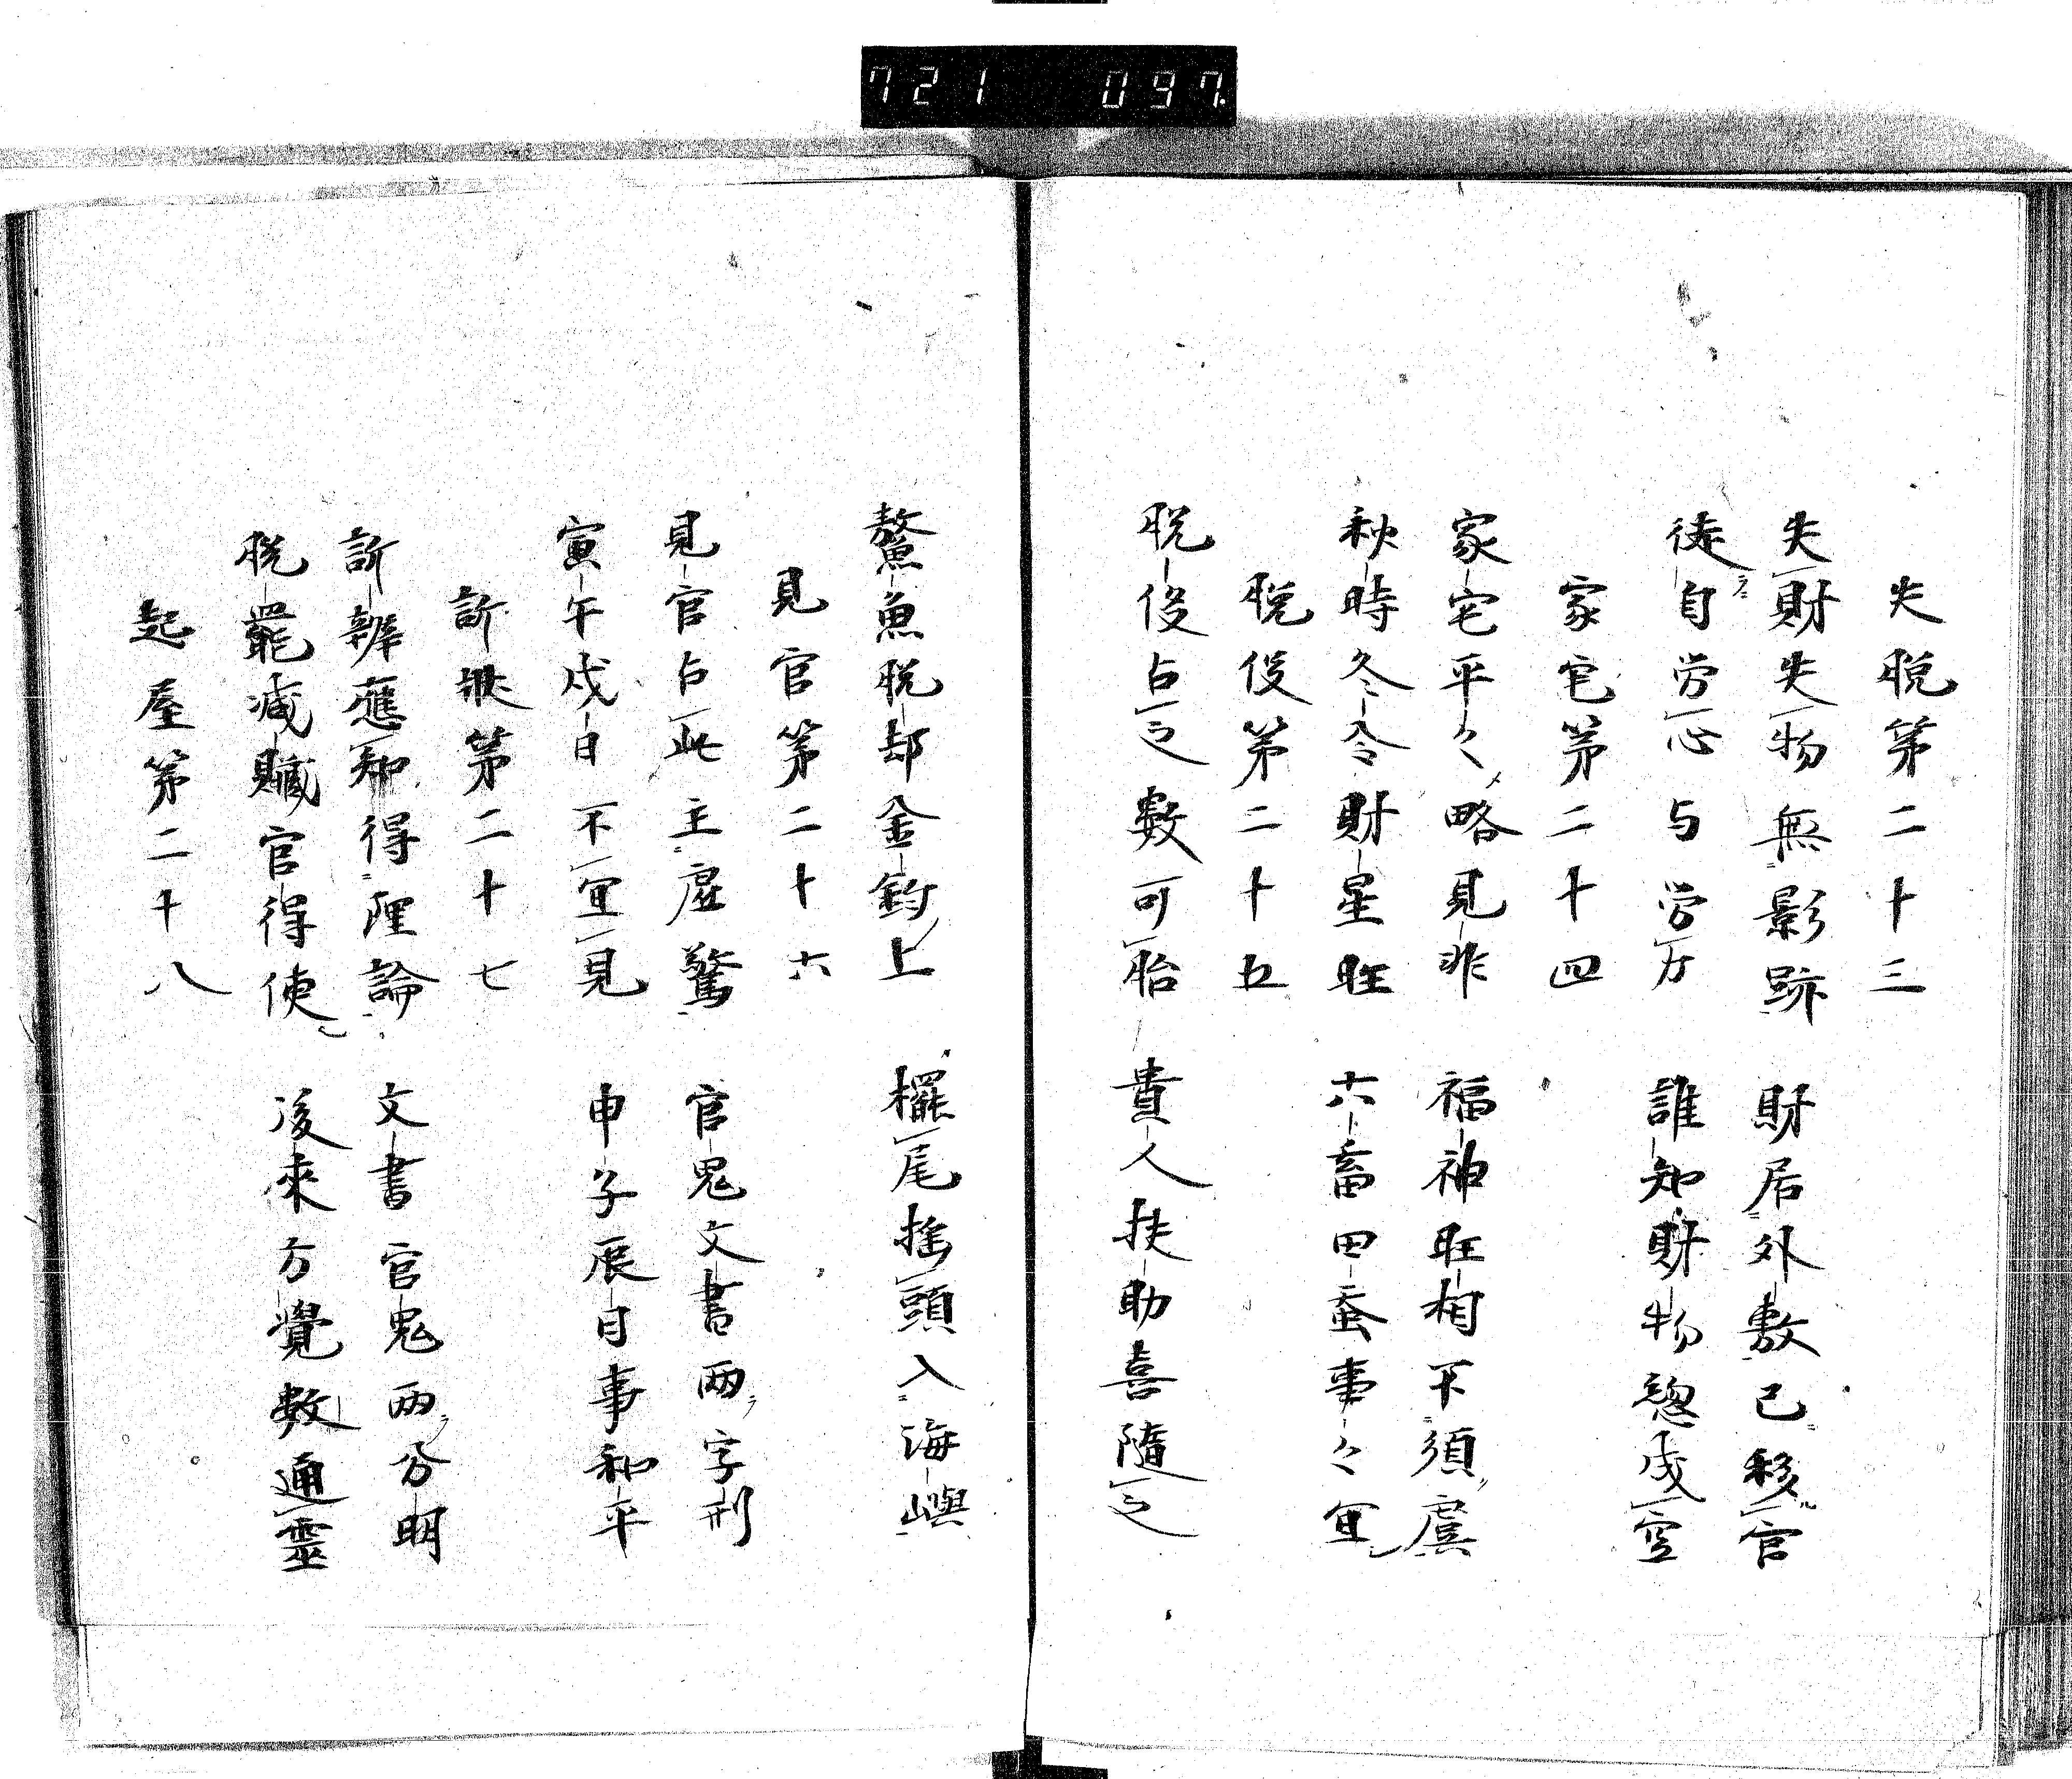 721 097.
失脱第二十三
失財失物無影跡 財居外敷已移官
徒自労心与労力 誰知財物惣成空
家宅第二十四
家宅平々略見非 福神旺相不須虞
秋時冬令財星旺 六畜田蚕事々宜
脱役第二十五
脱役占之數可胎 貴人扶助喜随之
鰲魚脱却金釣上 擺尾搖頭入海嶼
見官第二十六
見官占此主虚驚 官鬼文書两字刑
寅午戌日不宜見 申子辰日事和平
訴 第二十七
訴辨應知得理論 文書官鬼两分明
脱罷减贓官得使 後来方覺数通靈
起屋第二十八